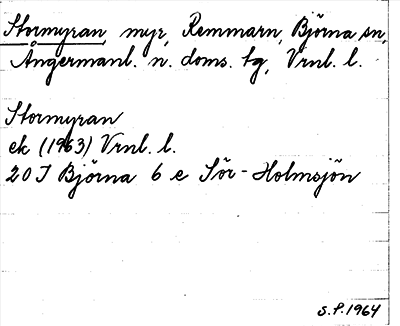 Stormyran, myr, Remmarn, Björna sn,
Ångermanl. n. doms. tg, Vrnl. l.
Stormyran
ek (1963) Vrnl. l.
20 I Björna 6 e Sör-Holmsjön
S.P. 1964